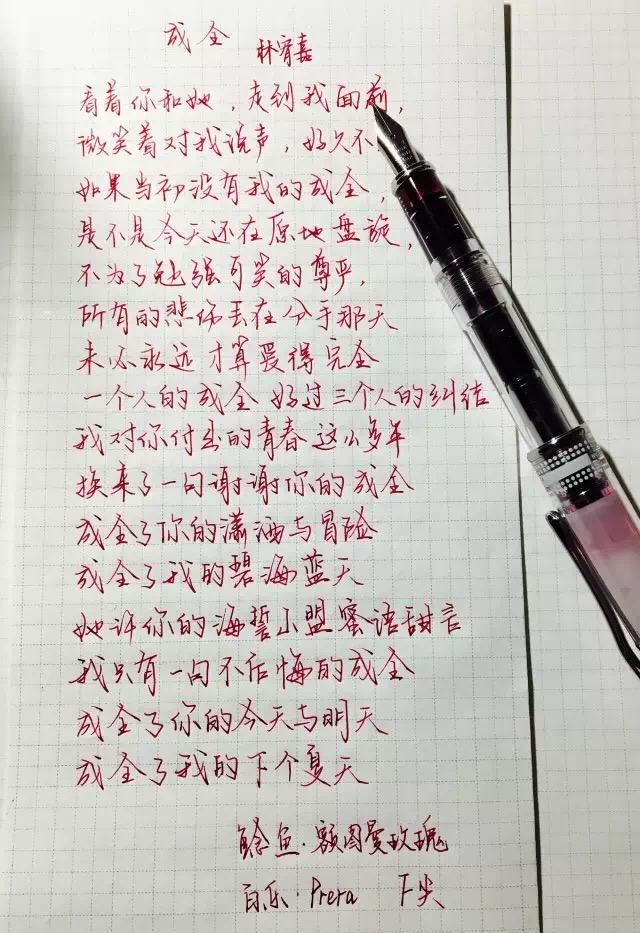 成全 林宥嘉
看着你和她，走到我面前，
微笑着对我说声，好久不
如果当初没有我的成全，
是不是今天还在原地盘旋，
不为了勉强可笑的尊严，
所有的悲伤丢在分手那天
未必永远才算爱得完全
一个人的成全 好过三个人的纠结
我对你付出的青春这么多年
换来了一句谢谢你的成全
成全了你的潇洒与冒险
成全了我的碧海蓝天
她许你的海誓山盟蜜语甜言
我只有一句不后悔的成全
成全了你的今天与明天
成全了我的下个夏天
鲶鱼·额图曼玫瑰
百乐·Prera F尖